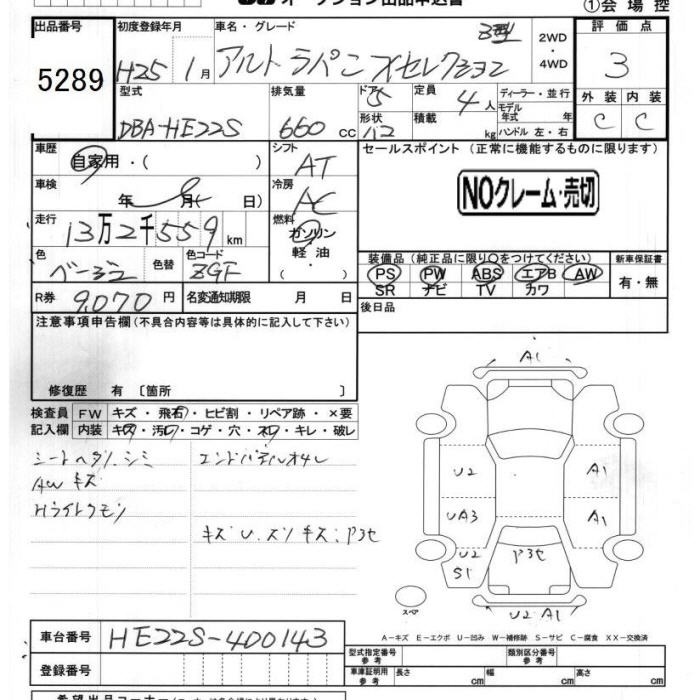 ①会場控
出品番号
5289
初度登録年月
H25 1月
車名・グレード
3型
アルト ラパン Xセレクション
2WD
・
4WD
評価点
3
外装 内装
C C
型式
DBA-HE22S
排気量
660 cc
ドア
5
形状
定員
4人
積載
kg
ディーラー・並行
モデル
年式 年
ハンドル 左・右
車歴
自家用・( )
シフト
AT
車検
年 月( 日)
冷房
AC
走行
13万2千559km
燃料
ガソリン
軽油
・
( )
色
ベージュ
色替
色コード
ZGF
R券
9,070円
名変通知期限 月 日
セールスポイント (正常に機能するものに限ります)
NOクレーム・売切
装備品(純正品に限り○をつけてください)
PS PW ABS エアB AW
SR ナビ TV カワ
新車保証書
有・無
後日品
注意事項申告欄(不具合内容等は具体的に記入して下さい)
修復歴 有 〔箇所 〕
検査員 FW キズ・飛石・ヒビ割・リペア跡・×要
記入欄 内装 キズ・汚レ・コゲ・穴・ネロ・キレ・破レ
シートヘタリ、シミ
AWキズ
Hライトクモリ
エンドパネルオシレ
キズ U.スリキズ:P3セ
A1
U2
A1
UA3
A1
U2
S1
P3セ
スペア
U2 A1
A－キズ E－エクボ U－凹み W－補修跡 S－サビ C－腐食 XX－交換済
車台番号
HE22S-400143
登録番号
型式指定番号
参考
類別区分番号
参考
車庫証明用
参考
長さ cm
幅 cm
高さ cm